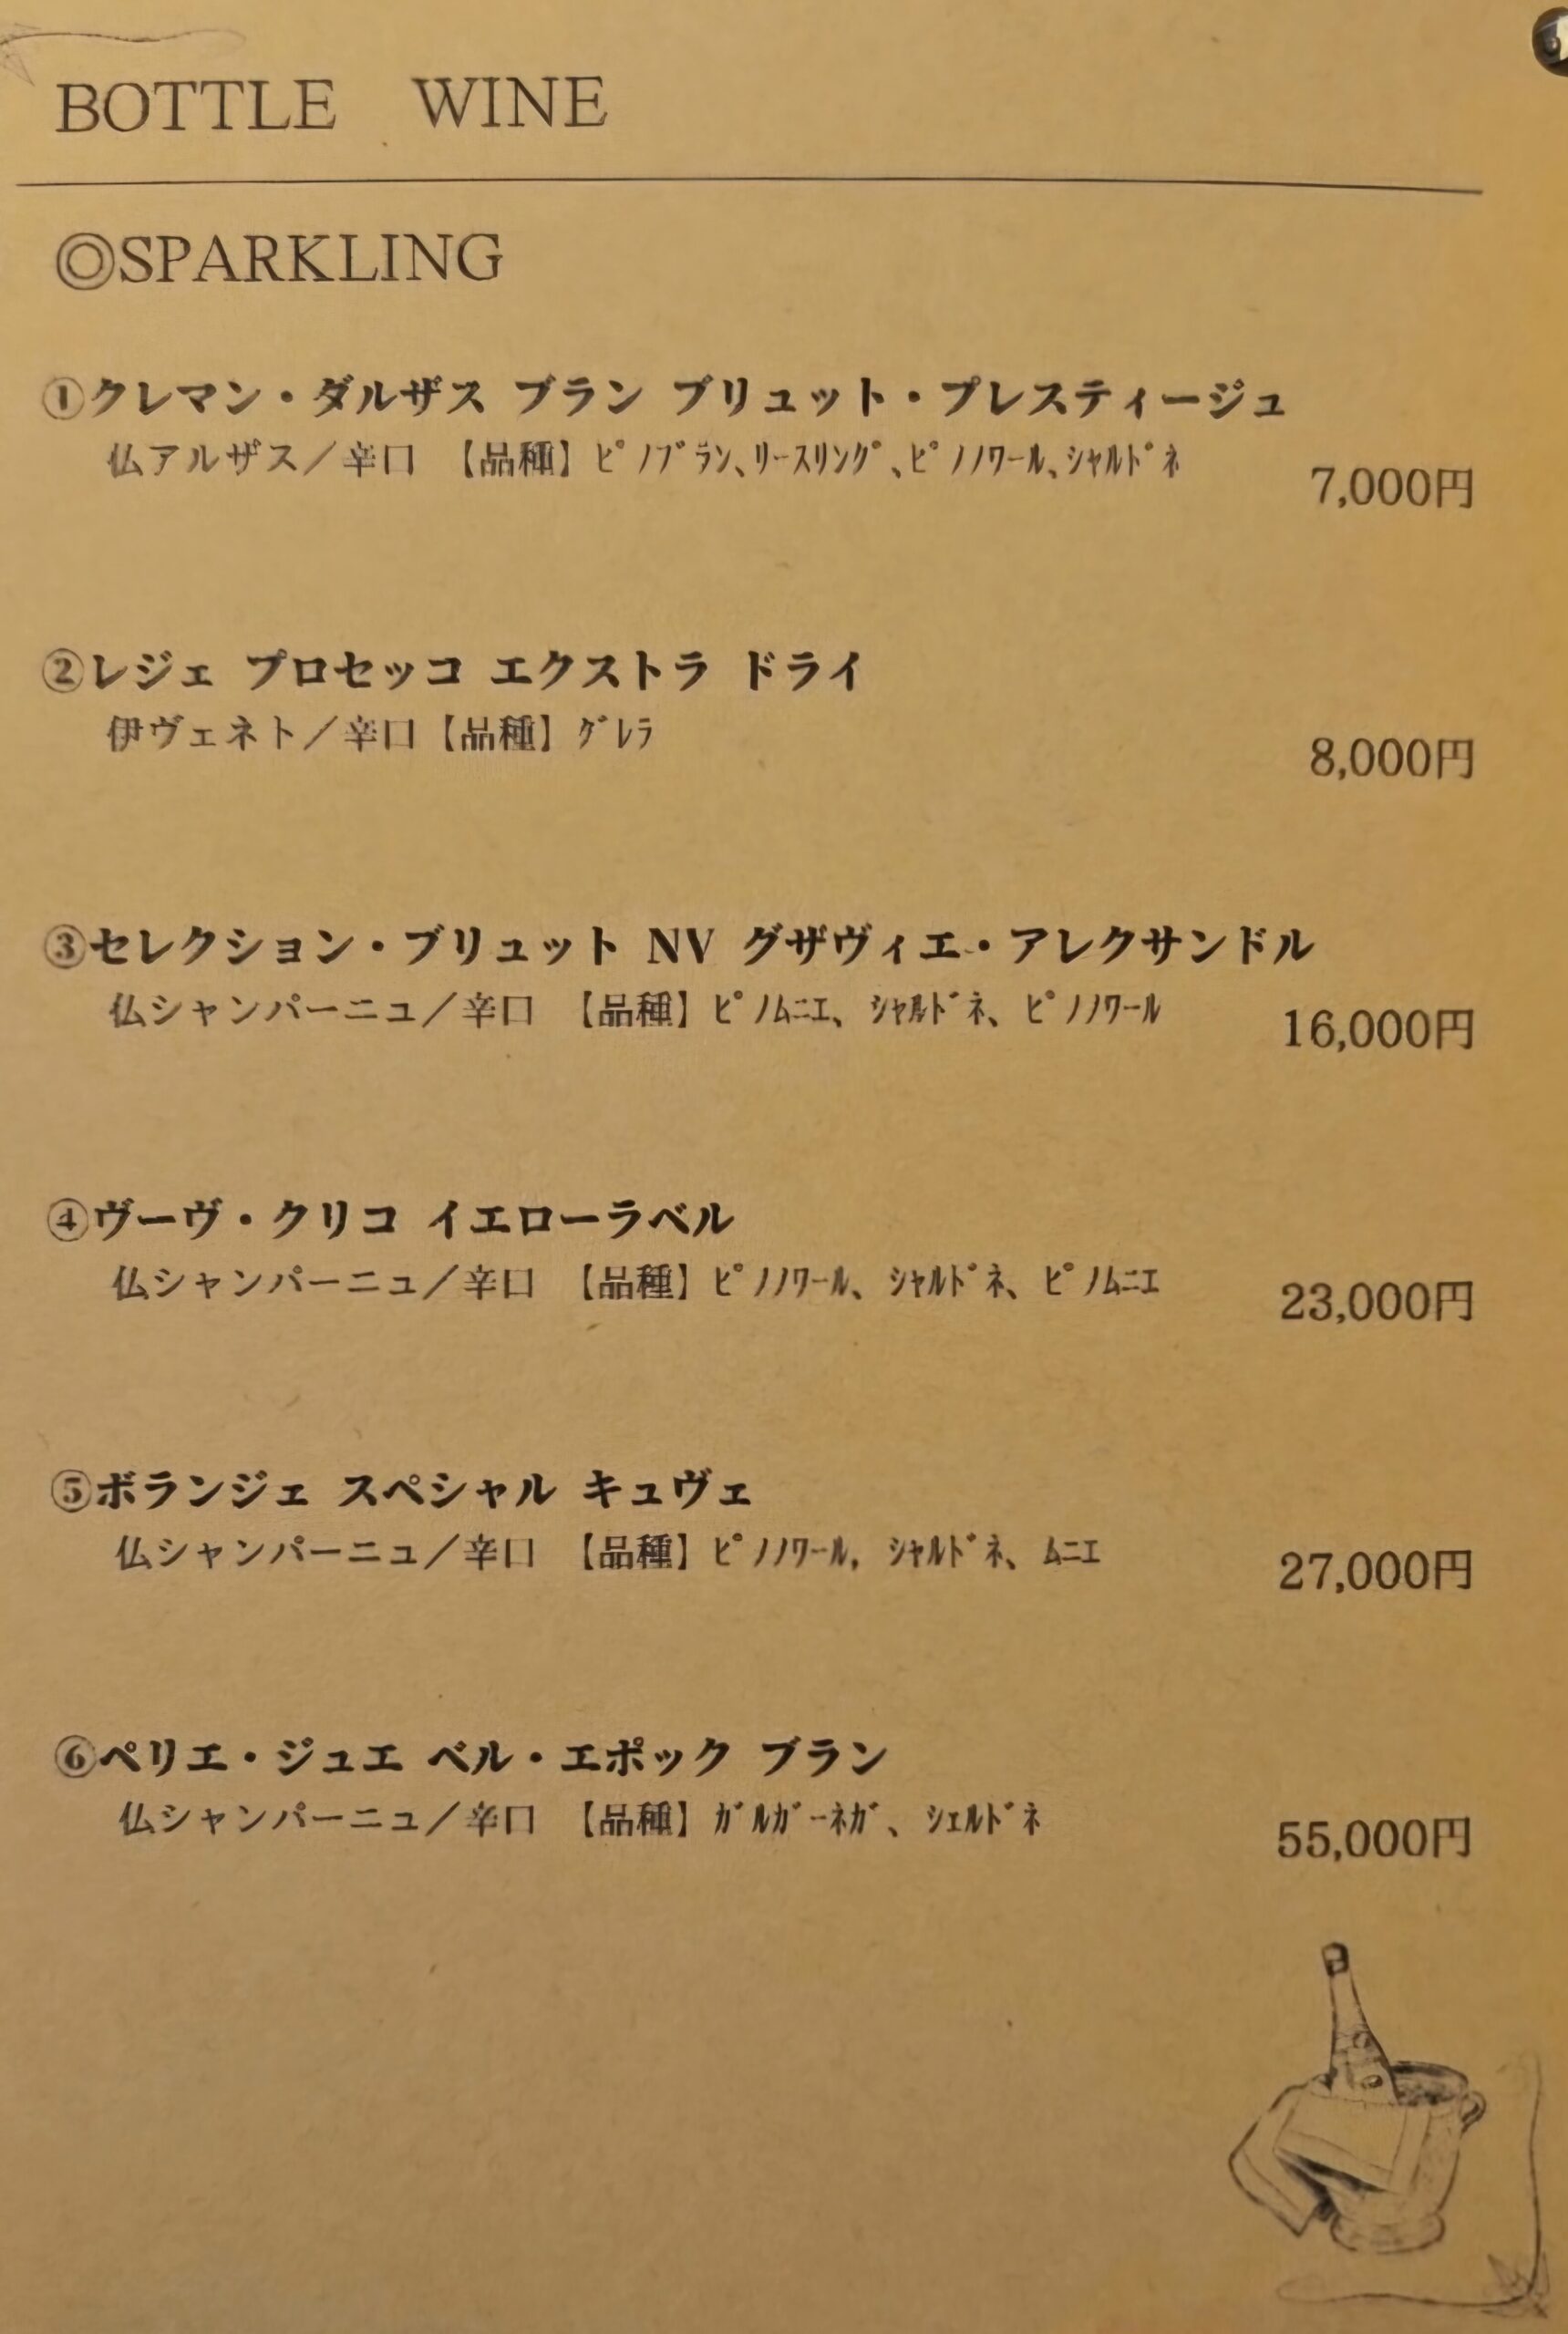 BOTTLE WINE
◎SPARKLING
①クレマン・ダルザス ブラン ブリュット・プレスティージュ
仏アルザス／辛口 【品種】ﾋﾟﾉﾌﾞﾗﾝ、ﾘｰｽﾘﾝｸﾞ、ﾋﾟﾉﾉﾜｰﾙ、ｼｬﾙﾄﾞﾈ
7,000円
②レジェ プロセッコ エクストラ ドライ
伊ヴェネト／辛口【品種】ｸﾞﾚﾗ
8,000円
③セレクション・ブリュット NV グザヴィエ・アレクサンドル
仏シャンパーニュ／辛口 【品種】ﾋﾟﾉﾑﾆｴ、 ｼｬﾙﾄﾞﾈ、 ﾋﾟﾉﾉﾜｰﾙ
16,000円
④ヴーヴ・クリコ イエローラベル
仏シャンパーニュ／辛口 【品種】ﾋﾟﾉﾉﾜｰﾙ、 ｼｬﾙﾄﾞﾈ、 ﾋﾟﾉﾑﾆｴ
23,000円
⑤ボランジェ スペシャル キュヴェ
仏シャンパーニュ／辛口 【品種】ﾋﾟﾉﾉﾜｰﾙ, ｼｬﾙﾄﾞﾈ、 ﾑﾆｴ
27,000円
⑥ペリエ・ジュエ ベル・エポック ブラン
仏シャンパーニュ／辛口 【品種】ｶﾞﾙｶﾞｰﾈｶﾞ、 ｼｪﾙﾄﾞﾈ
55,000円